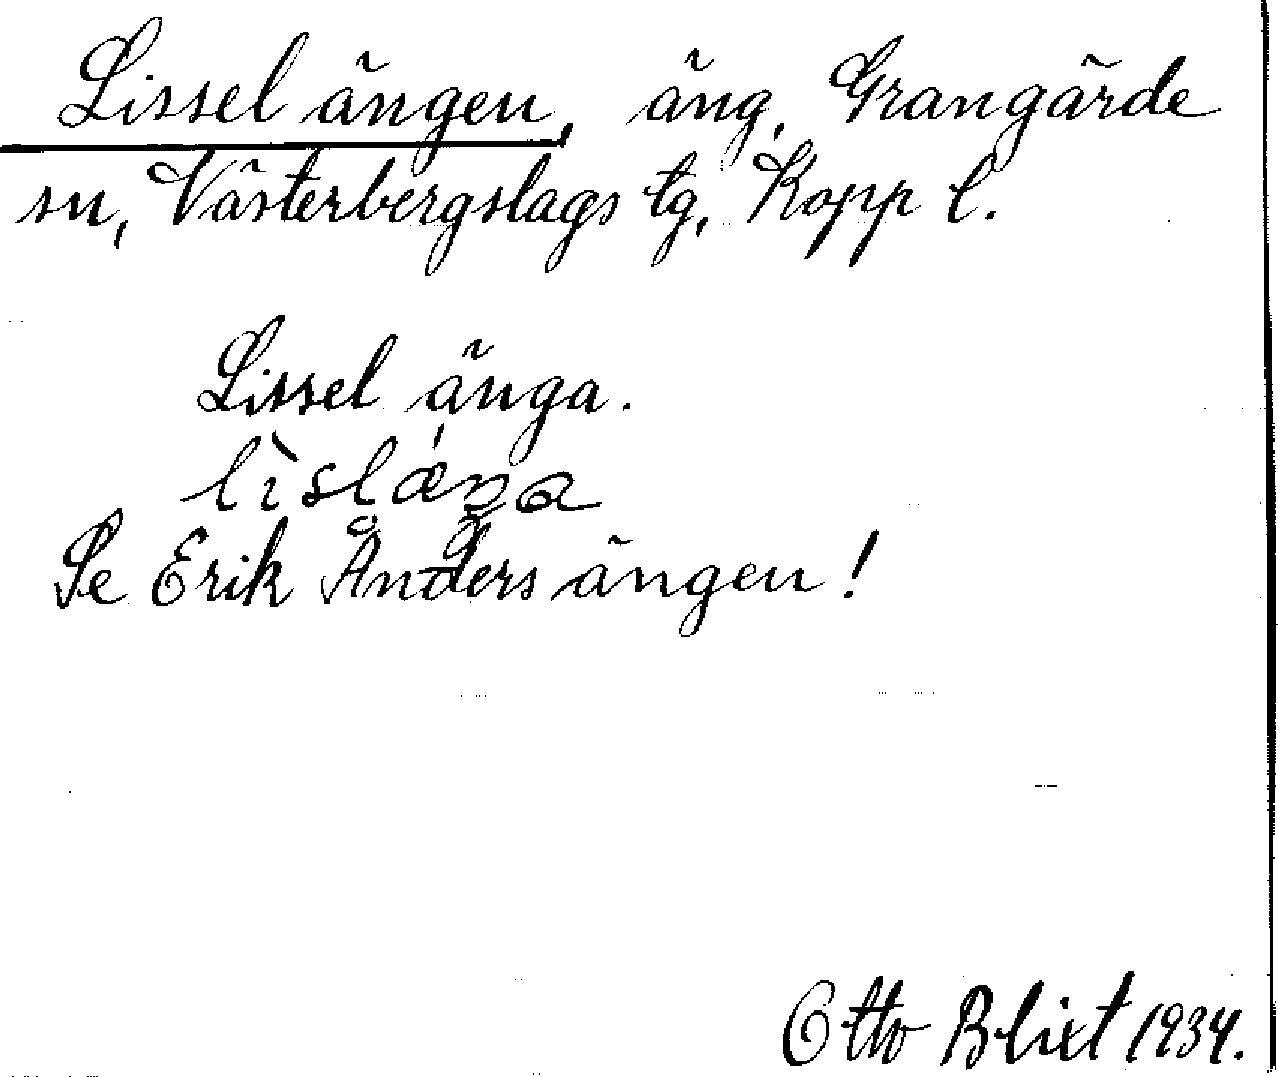 Lissel ängen, äng, Grangärde
sn, Västerbergslags tg, Kopp l.
Lissel änga.
lìslǽŋa
Se Erik Anders ängen!
Otto Blixt 1934.